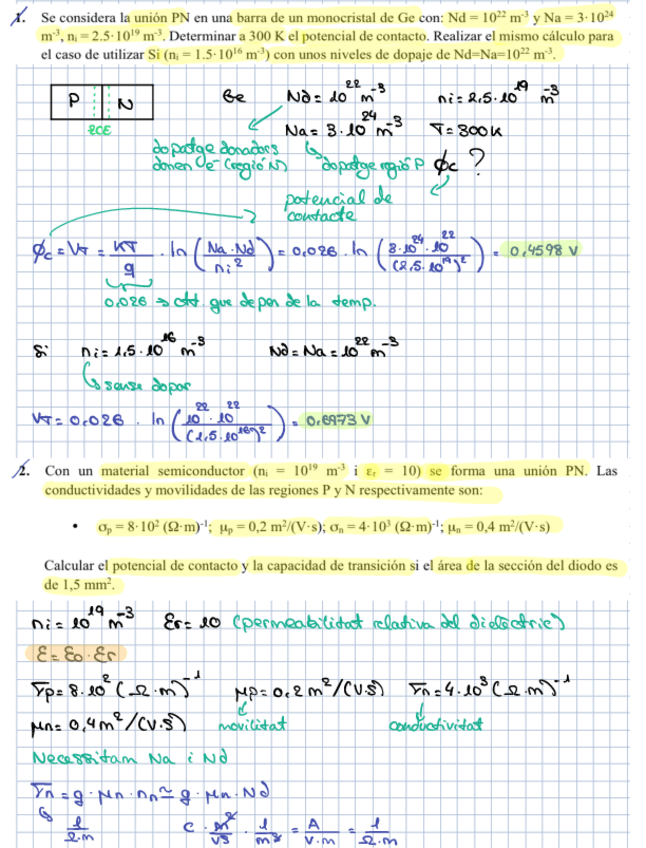 1. Se considera la unión PN en una barra de un monocristal de Ge con: Nd = 10²² m⁻³ y Na = 3·10²⁴
m⁻³, nᵢ = 2.5·10¹⁹ m⁻³. Determinar a 300 K el potencial de contacto. Realizar el mismo cálculo para
el caso de utilizar Si (nᵢ = 1.5·10¹⁶ m⁻³) con unos niveles de dopaje de Nd=Na=10²² m⁻³.
P N Ge Nd = 10²² m⁻³ ni = 2,5·10¹⁹ m⁻³
ZCE Na = 3·10²⁴ m⁻³ T = 300K
dopatge donadors
donen e⁻ (regió N) dopatge regió P ϕc ?
potencial de
contacte
ϕc = VT = KT/q · ln (Na·Nd/ni²) = 0,026 · ln (3·10²⁴·10²²/(2,5·10¹⁹)²) = 0,4598 V
0,026 → ctt. que depen de la temp.
Si ni = 1,5·10¹⁶ m⁻³ Nd = Na = 10²² m⁻³
sense dopar
VT = 0,026 · ln (10²²·10²²/(1,5·10¹⁶)²) = 0,6973 V
2. Con un material semiconductor (nᵢ = 10¹⁹ m⁻³ i εᵣ = 10) se forma una unión PN. Las
conductividades y movilidades de las regiones P y N respectivamente son:
• σₚ = 8·10² (Ω·m)⁻¹; μₚ = 0,2 m²/(V·s); σₙ = 4·10³ (Ω·m)⁻¹; μₙ = 0,4 m²/(V·s)
Calcular el potencial de contacto y la capacidad de transición si el área de la sección del diodo es
de 1,5 mm².
ni = 10¹⁹ m⁻³ εr = 10 (permeabilitat relativa del dielèctric)
ε = ε₀ · εr
σp = 8·10² (Ω·m)⁻¹ μp = 0,2 m²/(V·s) σn = 4·10³ (Ω·m)⁻¹
μn = 0,4 m²/(V·s) movilitat conductivitat
Necessitam Na i Nd
σn = q · μn · nn ≃ q · μn · Nd
1/Ω·m C · m²/VS · 1/m³ = A/V·m = 1/Ω·m